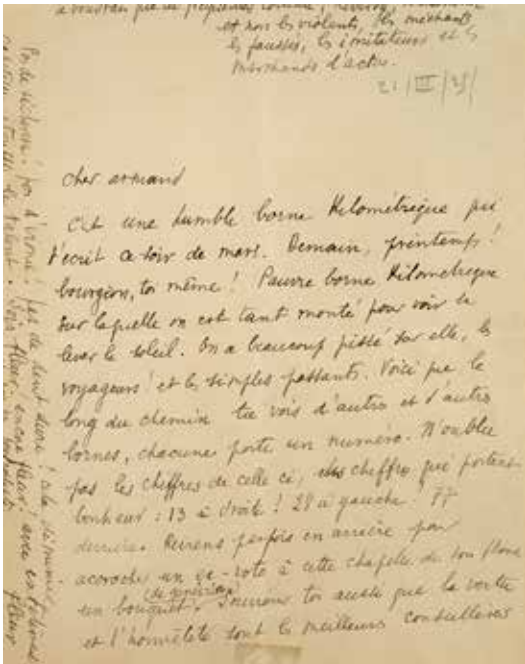 et non les violents, les méchants
les fausses, les imitateurs et les
marchands d'actes.
21/III/25/
cher armand
C'est une humble borne Kilométrique qui
t'écrit ce soir de mars. Demain, printemps!
bourgeon, toi même! Pauvre borne Kilometrique
sur laquelle on est tant monté pour voir se
lever le soleil. On a beaucoup pissé sur elle, les
voyageurs! et les simples passants. Voici que le
long du chemin tu vois d'autres et d'autres
bornes, chacune porte un numéro. N'oublie
pas les chiffres de celle ci, chiffres qui portent
bonheur: 13 à droite! 28 à gauche! 77
derrière. Reviens parfois en arrière pour
accrocher un ex-voto à cette chapelle de ton
un bouquet. Souviens toi aussi que la vertu
et l'honnêteté sont les meilleurs conseillères
Pas de sécheresse! pas d'ironie! pas de
de talent. Sois fleur! encore fleur! avec
fleur